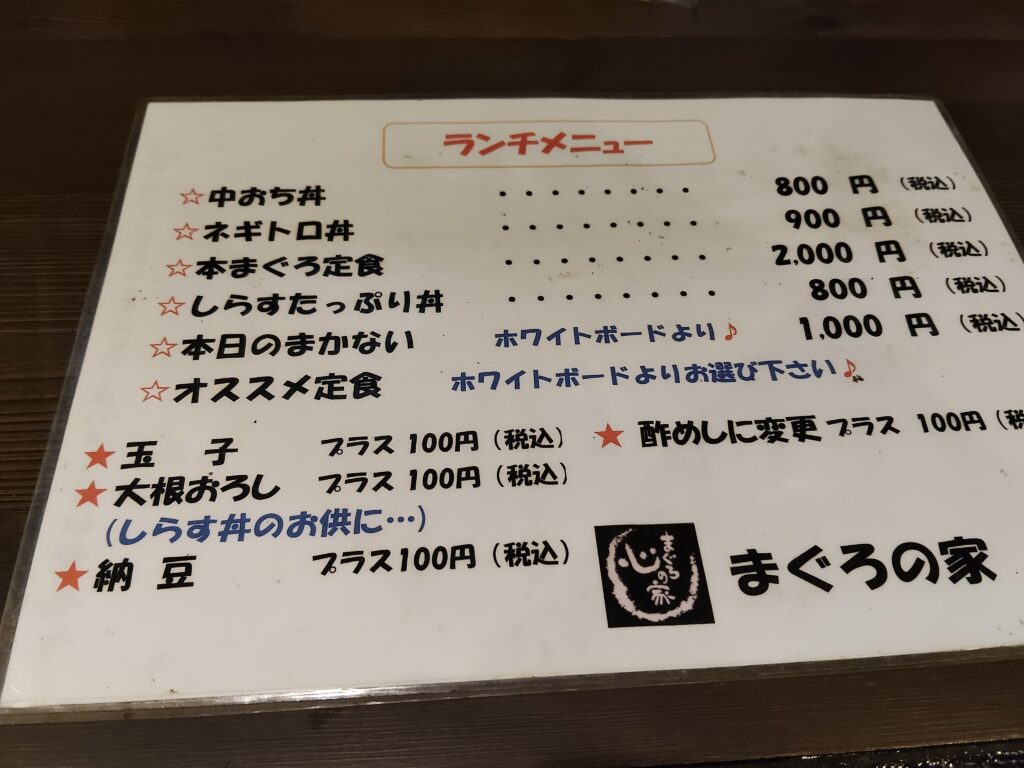 ランチメニュー
☆中おち丼 ・・・・・・・・ 800 円 (税込)
☆ネギトロ丼 ・・・・・・・・ 900 円 (税込)
☆本まぐろ定食 ・・・・・・・・ 2,000 円 (税込)
☆しらすたっぷり丼 ・・・・・・・・ 800 円 (税込)
☆本日のまかない ホワイトボードより♪ 1,000 円 (税込)
☆オススメ定食 ホワイトボードよりお選び下さい♪
★玉 子 プラス 100円 (税込) ★ 酢めしに変更 プラス 100円 (税
★大根おろし プラス 100円 (税込)
(しらす丼のお供に…)
★納 豆 プラス100円 (税込)
心
まぐろの家
まぐろの家